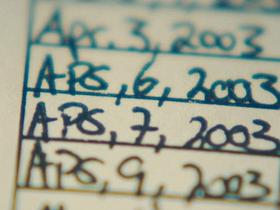 Apr. 3, 2003
APS, 6, 2003
APS, 7, 2003
APS, 9, 2003